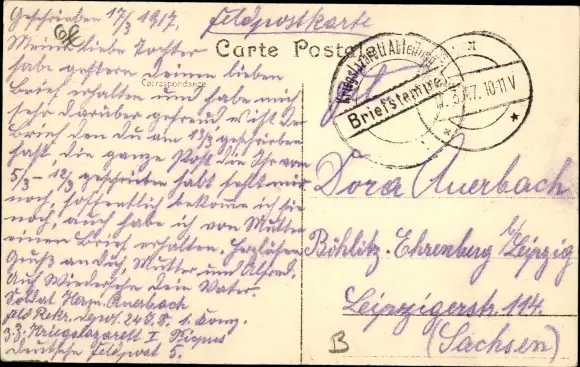 Geschrieben 17/3 1917. Feldpostkarte
Meine liebe Tochter
Carte Postale
habe gestern Deinen lieben
Correspondance
Brief erhalten und habe mich
sehr darüber gefreud wist de
Brief den du am 13/3 geschrieben
hast, die ganze Post die Ihr vom
5/3 - 12/3 geschrieben habt fehlt mir
noch, hoffentlich bekome ich sie
noch, auch habe ich von Mutter
einen Brief erhalten, Herzlichen
Gruß an dich, Mutter und Alfred.
Auf Wiedersehn dein Vater.
Soldat Herm. Auerbach
Feld Rekr. depot. 24 J. D. 1. Komp.
33. Kriegslazarett I
Deutsche Feldpost 5.
Briefstempel
10-11 V
Dora Auerbach
Böhlitz-Ehrenberg b/Leipzig
Leipzigerstr. 114.
(Sachsen)
B